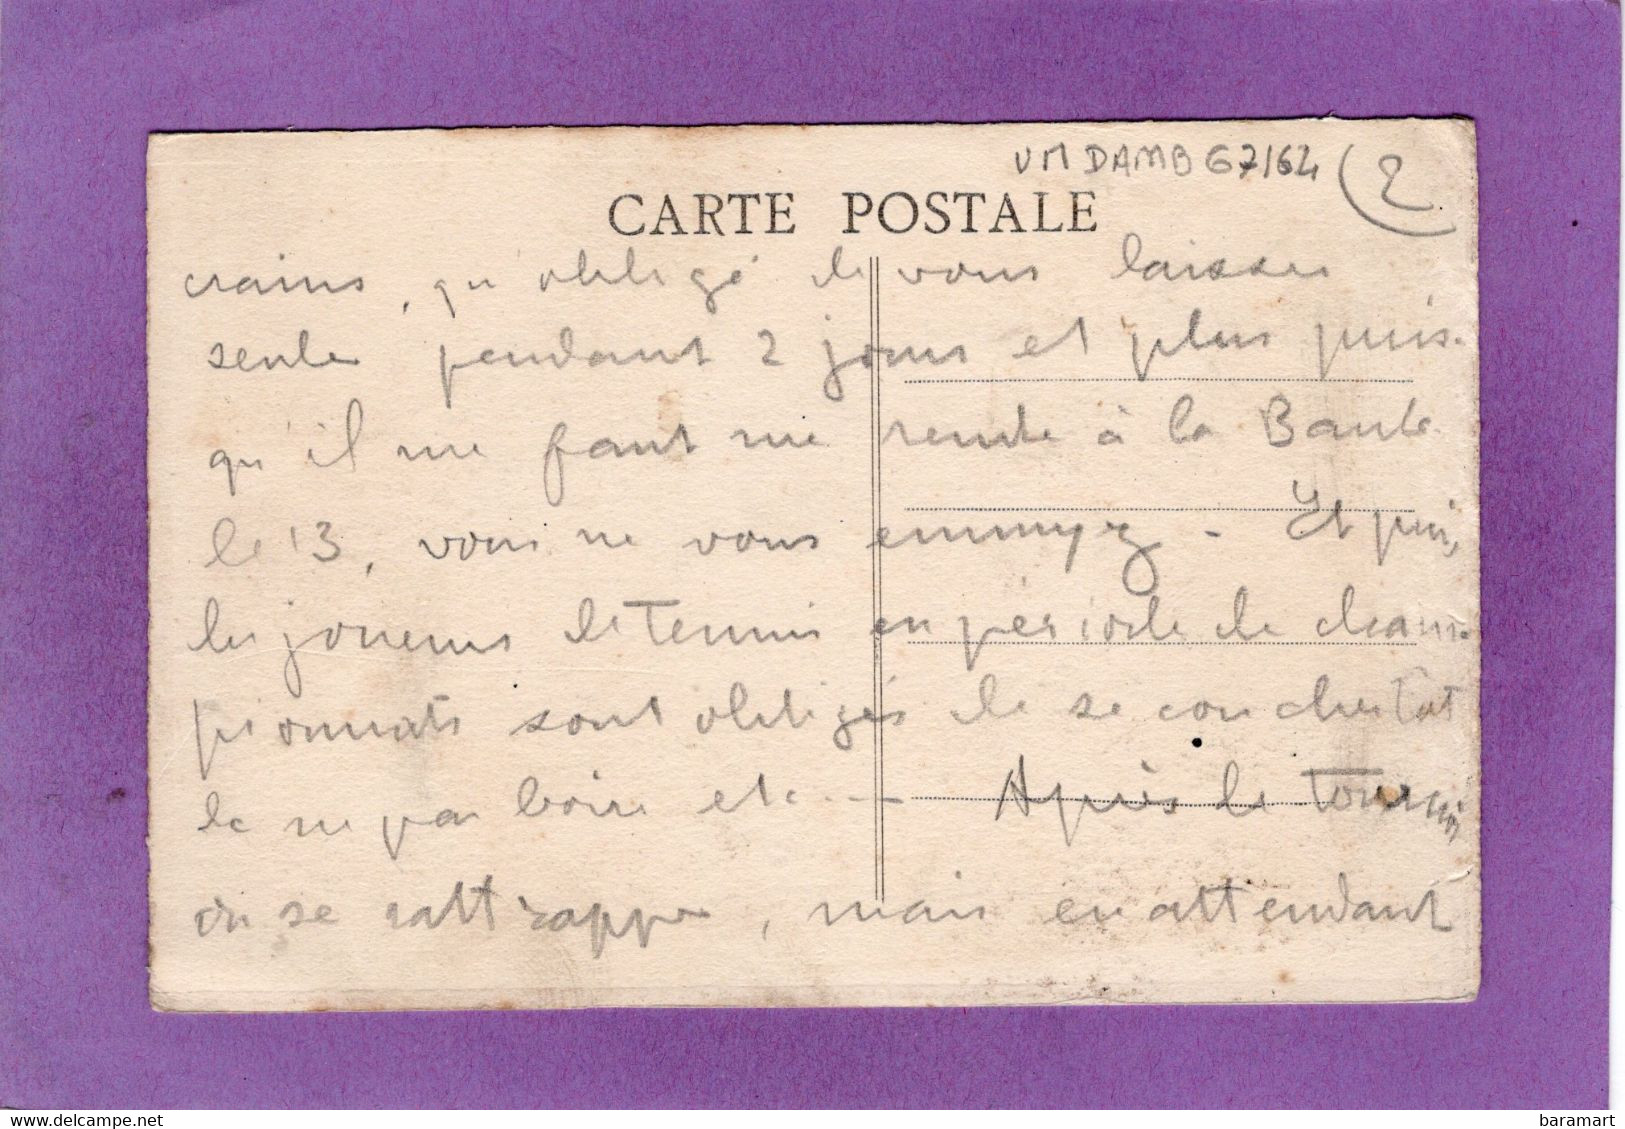 VM DAMB 67/64 2
CARTE POSTALE
crains, qu'obligé de vous laisser
seule pendant 2 jours et plus puis-
qu'il me faut me rendre à la Baule
le 13, vous ne vous ennuyez - Et puis
les joueurs de Tennis en période de cham-
pionnats sont obligés de se coucher tôt
de ne pas boire etc. - Après le Tournoi
on se rattrappe, mais en attendant
www.delcampe.net
baramart